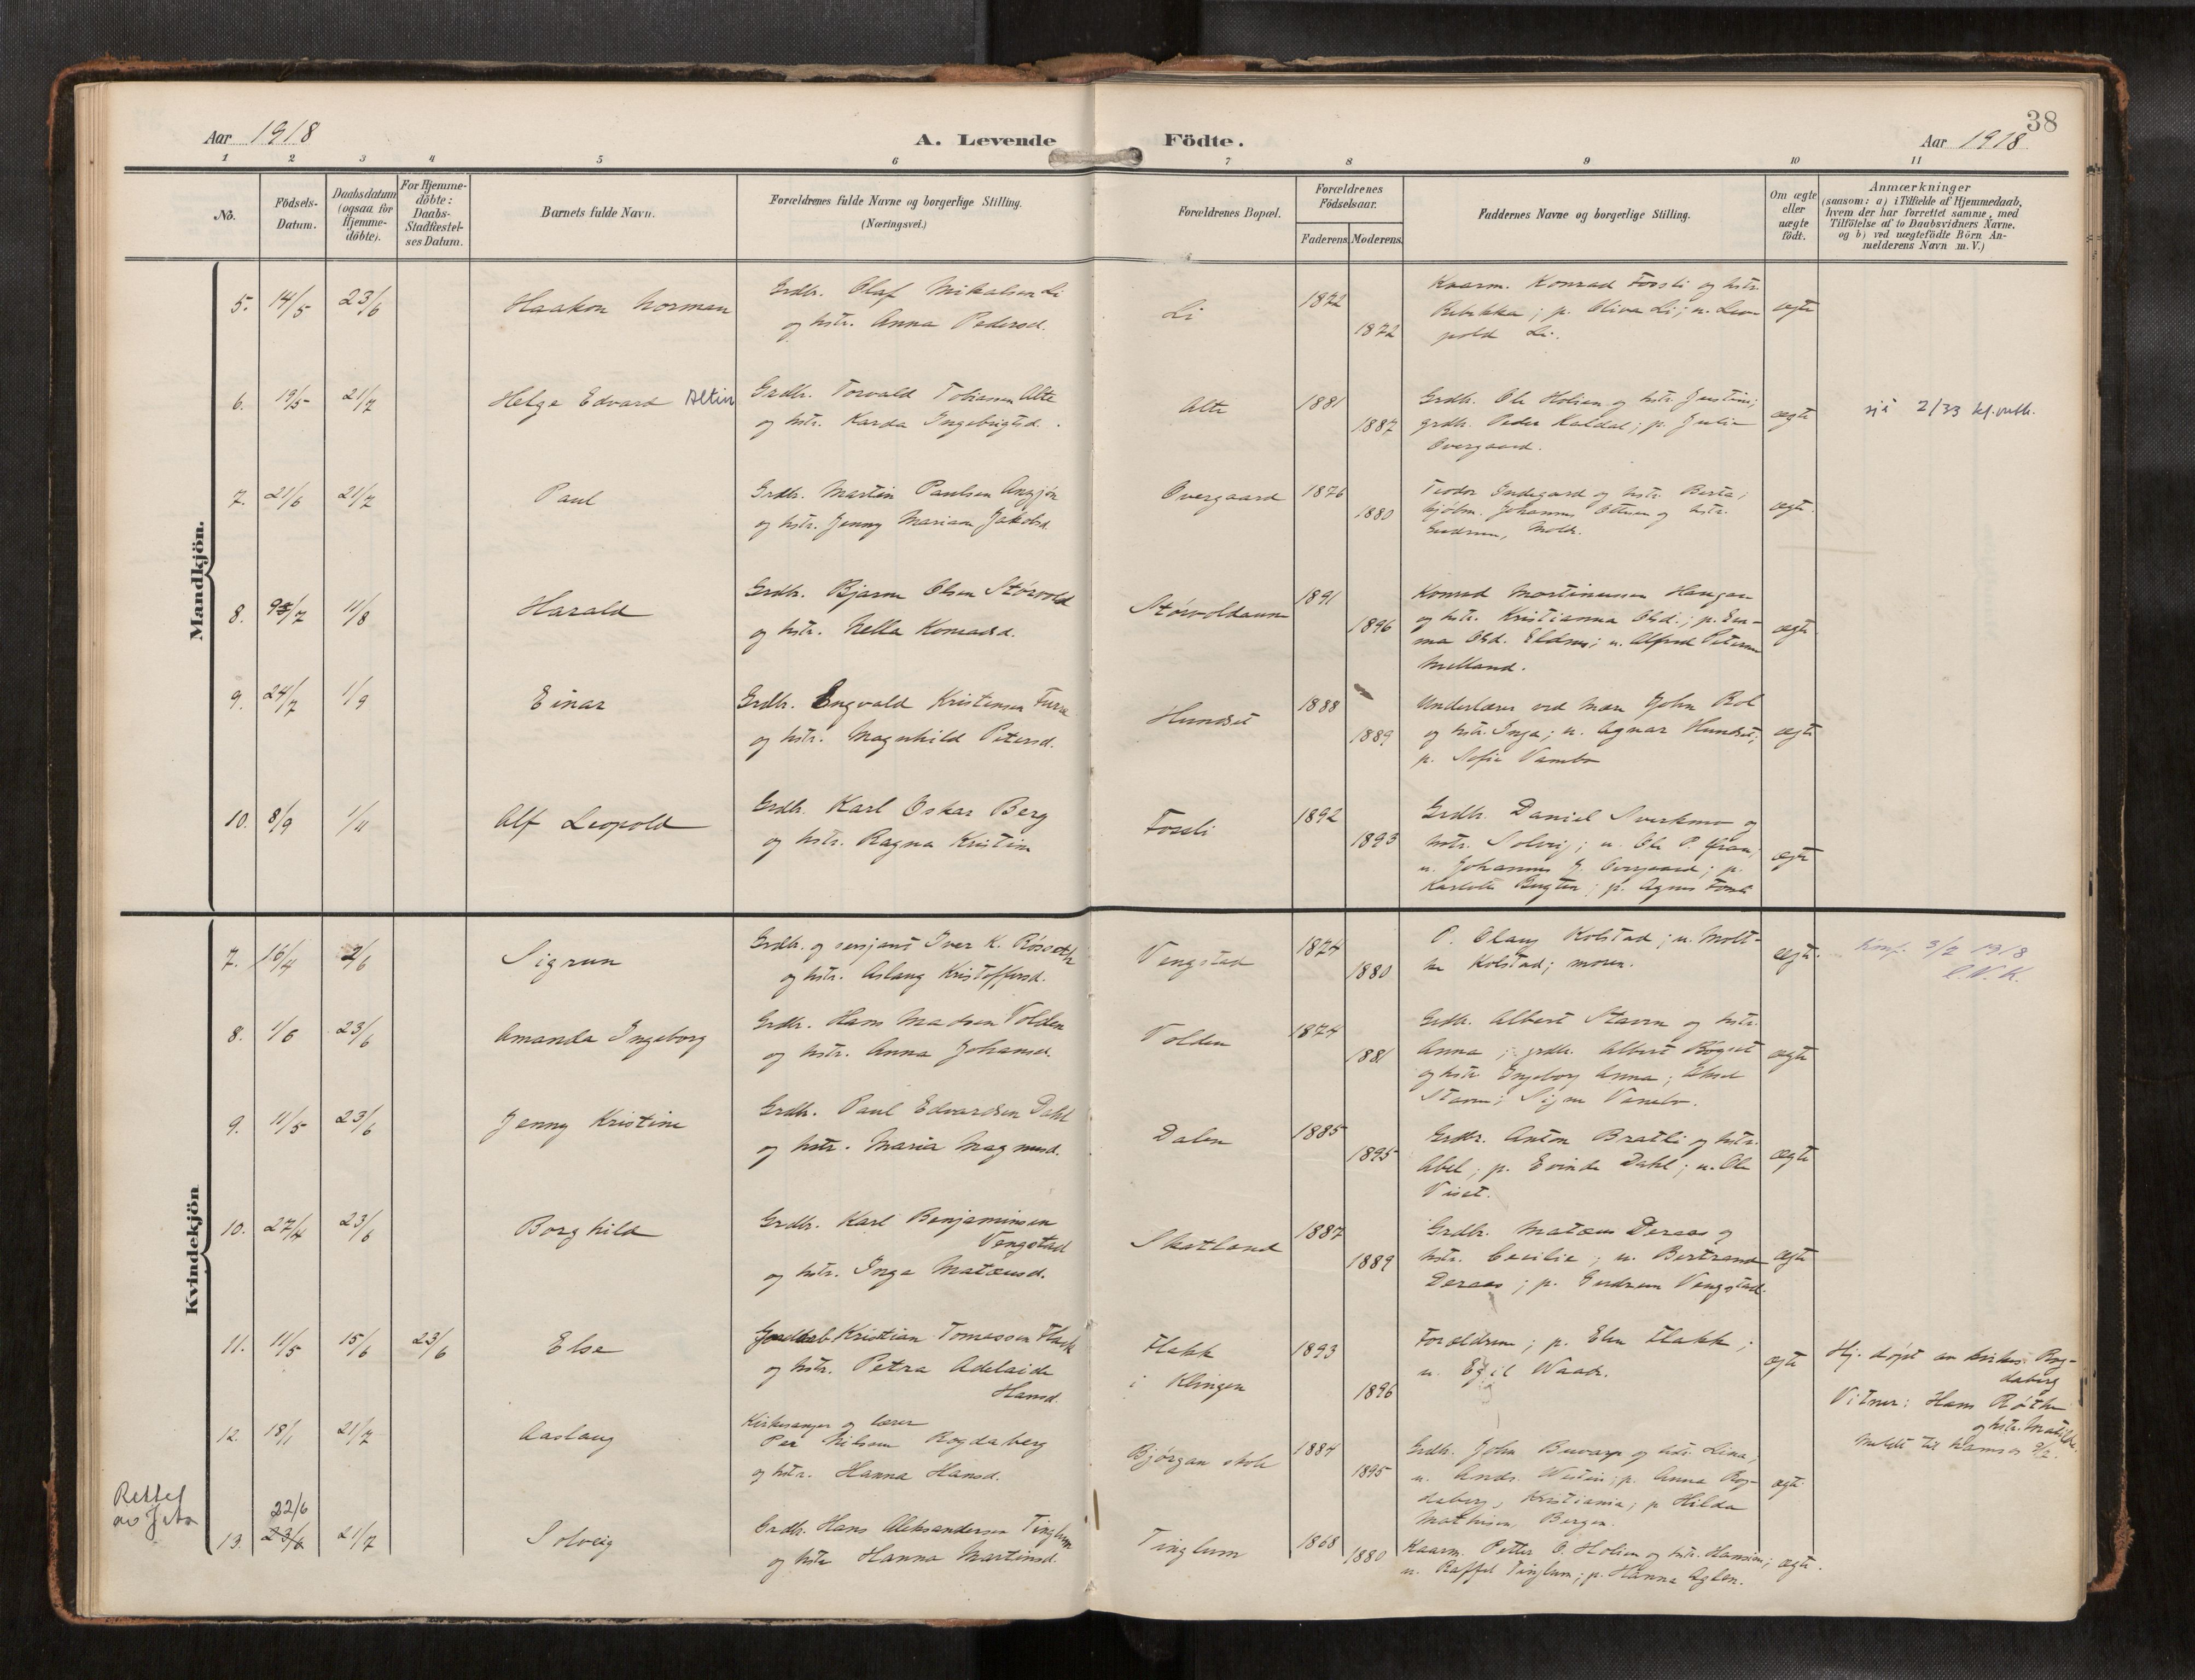 38
Aar 1918
A. Levende Födte.
Aar 1918
1 2 3 4 5 6 7 8 9 10 11
No.
Födsels-
Datum.
Daabsdatum
(ogsaa for
Hjemme-
döbte).
For Hjemme-
döbte:
Daabs-
Stadfæstel-
ses Datum.
Barnets fulde Navn.
Forældrenes fulde Navne og borgerlige Stilling.
(Næringsvei.)
Forældrenes Bopæl.
Forældrenes
Födselsaar.
Faderens. Moderens.
Faddernes Navne og borgerlige Stilling.
Om ægte
eller
uægte
födt.
Anmærkninger
(saasom: a) i Tilfælde af Hjemmedaab,
hvem der har forrettet samme, med
Tilföielse af to Daabsvidners Navne,
og b) ved uægtefödte Börn An-
melderens Navn m. V.)
Mandkjön.
5. 14/5 23/6 Haakon Norman
Grdbr. Olaf Mikalsen Li
og hstr. Anna Pedersd.
Li 1872 1872
Kaarm. Konrad Fossli og hstr.
Rebekka; p. Oliva Li; u. Leo-
pold Li.
ægte
6. 19/5 21/7 Helge Edvard Altin
Grdbr. Torvald Tobiassen Alte
og hstr. Karda Ingebrigtsd.
Alte 1881 1887
Grdb. Ole Holien og hstr. Justine;
grdb. Peder Kaldal; p. Julie
Overgaard.
ægte
sjå 2/33 kl.vedk.
7. 21/6 21/7 Paul
Grdbr. Martin Paulsen
og hstr. Jenny Mariane Jakobsd.
Overgaard 1876 1880
Teodor Indegaard og hstr. Berta;
kjøbm. Johannes Ottesen og hstr.
Gudrun, Molde.
ægte.
8. 9/7 11/8 Harald
Grdbr. Bjarne Olsen Størvold
og hstr. Nella Konradsd.
Størvoldaunn 1891 1896
Konrad Martinussen Haugan
og hstr. Kristianna Olsd.; p. Em-
ma Olsd. Eldnes; u. Alfred Petersen
Melland.
ægte
9. 24/7 1/9 Einar
Grdbr. Engvald Kristensen Furre
og hstr. Magnhild Petersd.
Hundset 1888 1889
Underlærer ved Mære John Bol
og hstr. Inga; u. Agnar Hundset;
p. Sofie Vambo
ægte
10. 8/9 1/11 Alf Leopold
Grdbr. Karl Oskar Berg
og hstr. Ragna Kristine
Fossli 1892 1893
Grdbr. Daniel Sverkmo og
hstr. Solveig; u. Ole P.
u. Johannes J. Overgaard; p.
p. Agnes Fossli
ægte
Kvindekjön
7. 16/4 2/6 Sigrun
Grdbr. og sersjant Iver K. Røsseth
og hstr. Aslaug Kristoffersd.
Vengstad 1874 1880
P. Olaug Kolstad; u. Molt-
ke Kolstad; moren.
ægte.
Konf. 3/2 1918
O.N.K.
8. 1/6 23/6 Amanda Ingeborg
Grdbr. Hans Madsen Volden
og hstr. Anna Johansd.
Volden 1874 1881
Grdb. Albert Stavrn og hstr.
Anna; grdb. Albert Bøgset
og hstr. Ingeborg Anna;
Stavrn; Signe Vanebo.
ægte
9. 11/5 23/6 Jenny Kristine
Grdbr. Paul Edvardsen Dahl
og hstr. Maria Magnusd.
Dalen 1885 1895
Grdbr. Anton Bratli og hstr.
Abel; p. Evinda Dahl; u. Ole
Viset.
ægte
10. 27/4 23/6 Borghild
Grdbr. Karl Benjaminsen
Vengstad
og hstr. Inga Matæusd.
Skatland 1887 1889
Grdbr. Matæus Deraas og
hstr. Cecilie; u. Bertrand
Deraas; p. Gudrun Vengstad.
ægte
11. 11/5 15/6 23/6 Else
Kristian Tomassen Flak
og hstr. Petra Adelaide
Hansd.
Flakk
i Klingen
1893 1896
Forældrene; p. Elen Flakk;
u. Egil Waade.
ægte
Hj. døpt av kirkes. Rog-
daberg
Vitner: Hans Røthe
og hstr. Matilde.
Meldt til Namsos 2/2.
12. 18/1 21/7 Aaslaug
Kirkesanger og lærer
Per Nilsen Rogdaberg
og hstr. Hanna Hansd.
Bjørgan skole 1884 1895
Grdb. John Buvarp og hstr. Lina;
u. Andr. Westin; p. Anna Rog-
daberg, Kristiania; p. Hilda
Mathisen, Bergen.
ægte.
Rettet
av Jeta
22/6
13. 23/6 21/7 Solveig
Grdbr. Hans Aleksandersen Tinglum
og hstr. Hanna Martinsd.
Tinglum 1868 1880
Kaarm. Petter O. Holien og hstr. Hansine;
u. Raffel Tinglum; p. Hanna Aglen.
ægte.